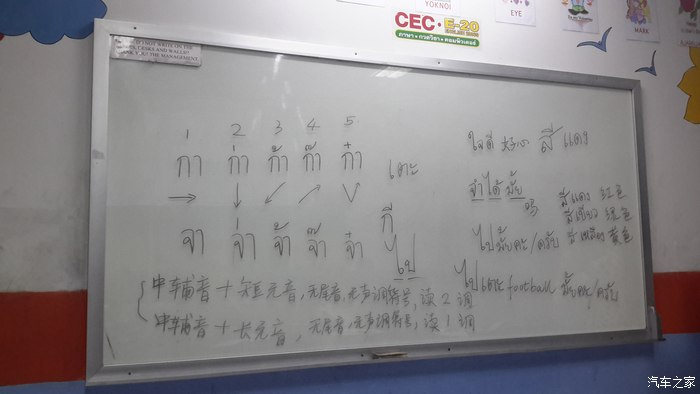 EYE
MARK
CEC · E-20
ภาษา • กวดวิชา • คอมพิวเตอร์
NOT WRITE ON THE
DESKS AND WALLS!
YOU! THE MANAGEMENT.
1 2 3 4 5
ก่า ก่า ก้า ก๊า ก๋า เตะ
→ ↓ ↙ ↗ ∨
กี
จา จ่า จ้า จ๊า จ๋า
ไป
中辅音 + 短元音, 无尾音, 无声调符号, 读2调
中辅音 + 长元音, 无尾音, 无声调符号, 读1调
ใจดี 好心 สี แดง
จำได้มั้ย 吗 สีแดง 红色
สีเขียว 绿色
ไปมั้ยคะ/ครับ สีเหลือง 黄色
ไปเตะ football มั้ยคะ/ครับ
汽车之家